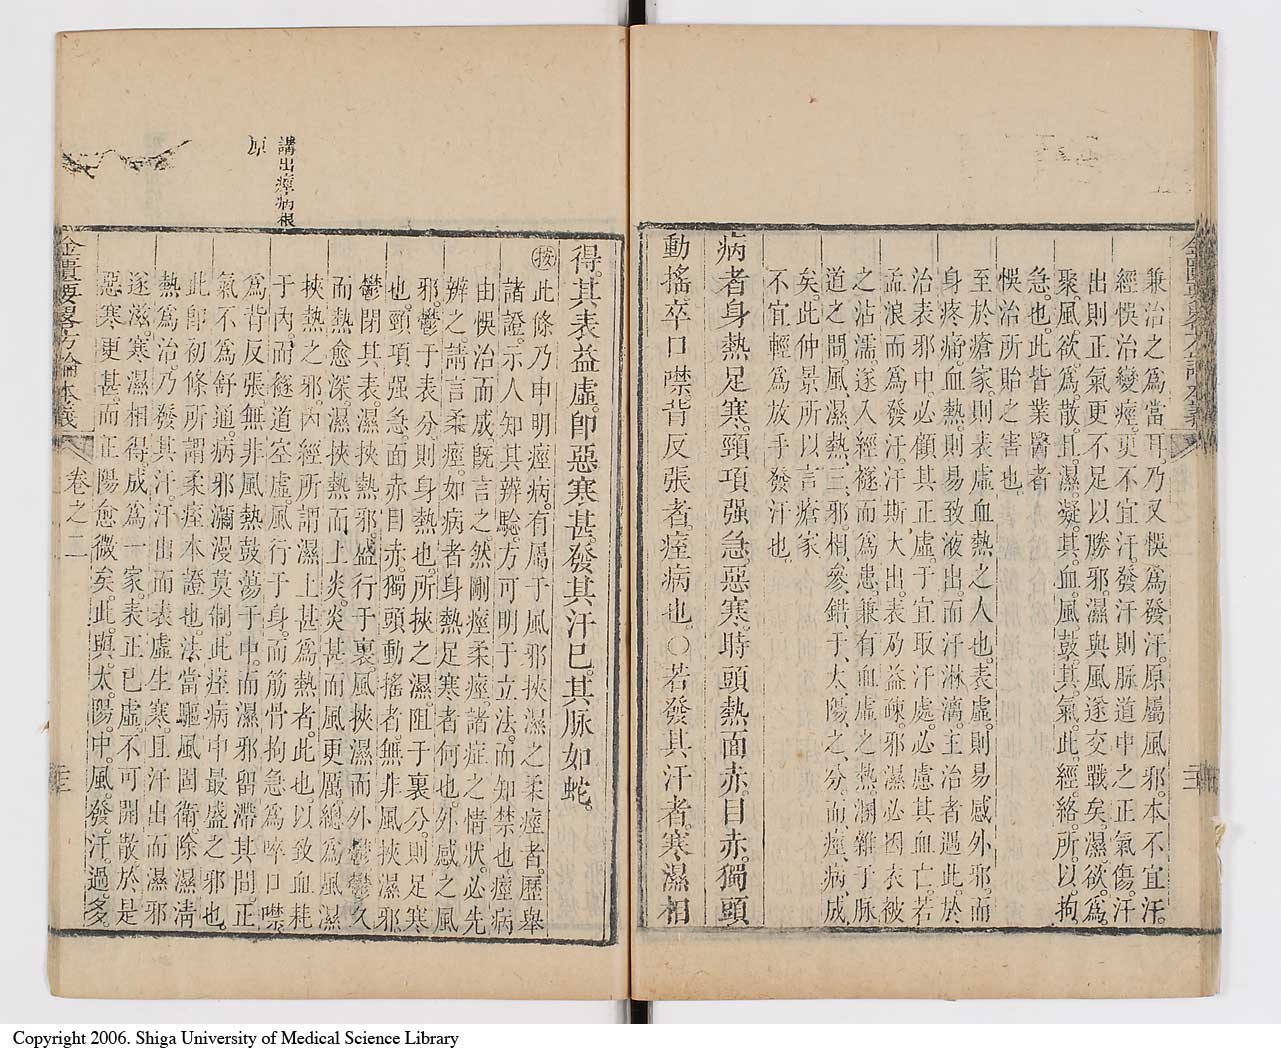 兼治之爲當耳。乃又悞爲發汗。原屬風邪。本不宜汗。
經悞治變痙。更不宜汗。發汗則脉道中之正氣傷。汗
出則正氣更不足以勝邪。濕與風遂交戰矣。濕欲爲
聚。風欲爲散。且濕凝其血。風鼓其氣。此經絡所以拘
急也。此皆業醫者
悞治所貽之害也
至於瘡家。則表虛血熱之人也。表虛。則易感外邪。而
身疼痛。血熱。則易致液出。而汗淋漓。主治者遇此。於
治表邪中。必顧其正虛。于宜取汗處。必慮其血亡。若
孟浪而爲發汗。汗斯大出。表乃益疎。邪濕必因衣被
之沾濡。遂入經襚而爲患。兼有血虛之熱。溷雜于脉
道之間。風濕熱三邪。相參錯于太陽之分。而痙病成
矣。此仲景所以言瘡家
不宜輕爲放手發汗也
病者身熱足寒。頸項强急。惡寒。時頭熱。面赤。目赤。獨頭
動搖卒口噤。背反張者。痙病也。〇若發其汗者。寒濕相
卷之二
講出痙病根
原
得。其表益虛。卽惡寒甚。發其汗已。其脉如蛇。
按此條乃申明痙病。有屬于風邪挾濕之柔痙者。歷舉
諸證。示人知其辨騐。方可明于立法。而知禁也。痙病
由悞治而成。旣言之。然剛痙柔痙。諸症之情狀。必先
辨之。請言柔痙。如病者身熱足寒者何也。外感之風
邪。鬱于表分。則身熱也。所挾之濕。阻于裏分。則足寒
也。頸項强急。面赤目赤。獨頭動搖者。無非風挾濕邪
鬱閉其表。濕挾熱邪。盛行于裏。風挾濕而外鬱。鬱久
而熱愈深。濕挾熱而上炎。炎甚而風更厲。總爲風濕
挾熱之邪。內經所謂濕上甚爲熱者。此也。以致血耗
于內。而襚道空虛。風行于身。而筋骨拘急。爲啐口噤
爲背反張。無非風熱鼓蕩于中。而濕邪留滯其間。正
氣不爲舒通。病邪瀰漫莫制。此痙病中最盛之邪也。
此卽初條所謂柔痙本證也。法當驅風固衛。除濕清
熱爲治。乃發其汗。汗出而表虛生寒。且汗出而濕邪
遂滋。寒濕相得。成爲一家。表正已虛。不可開散。於是
惡寒更甚。而正陽愈微矣。此與太陽中風。發汗過多
金匱要畧方論本義
卷之二